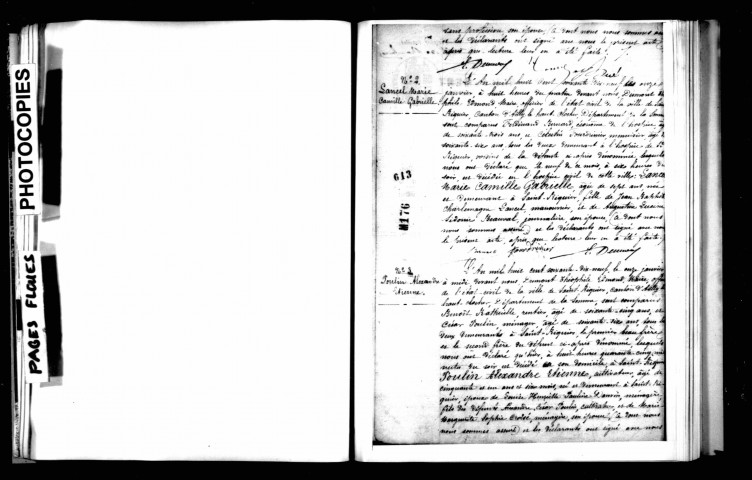 PHOTOCOPIES
PAGES FLOUES
sans profession son épouse, (à dont nous nous sommes
et les déclarants ont signé avec nous le présent acte,
après que lecture leur en a été faite.
N° 2
Lancel Marie
Camille Gabrielle
L'An mil huit cent soixante dix-neuf, les onze
janvier à huit heures du matin devant nous, Dumont
phile Edmond Maire officier de l'état civil de la ville de
Riquier, Canton d'Ailly le haut clocher, Département de la Somme
sont comparus Ferdinand Bernard, économe de l'hospice,
de soixante trois ans, et Célestin Fourdrinier, meunier, âgé
soixante-six ans, tous les deux demeurant à l'hospice de St
Riquier, voisins de la défunte ci-après dénommée, lesquels
nous ont déclaré que le neuf de ce mois, à six heures du
soir, est décédée en l'hospice civil de cette ville, Lancel
Marie Camille Gabrielle âgée de sept ans née
et demeurant à Saint-Riquier, fille de Jean Baptiste
Charlemagne Lancel, manouvrier, et de Augustine
Sidonie Beauval, journalière son épouse, (à dont nous
nous sommes assuré) et les déclarants ont signé avec nous
le présent acte, après que lecture leur en a été faite.
613
M176
N° 3
Poulin Alexandre
Etienne.
L'An mil huit cent soixante-dix-neuf, le onze janvier
à midi, devant nous Dumont Théophile Edmond, Maire,
de l'état-civil de la ville de Saint-Riquier, canton d'Ailly le
haut clocher, Département de la Somme, sont comparus
Benoît rentier, âgé de soixante-cinq ans, et
César Poulin, ménager, âgé de soixante-six ans, tous les
deux demeurants à Saint-Riquier, le premier beau-frère
et le second frère du défunt ci-après dénommé, lesquels
nous ont déclaré qu'hier, à huit heures quarante-cinq
minutes du soir est décédé en son domicile à Saint-Riquier
Poulin Alexandre Etienne, cultivateur, âgé de
cinquante et un ans et six mois, né et demeurant à Saint-Ri-
quier, époux de Louise Henriette Pauline ménagère,
fils des défunts Alexandre César Poulin, cultivateur, et de Marie
Marguerite Sophie ménagère, son épouse, (à dont nous
nous sommes assuré) et les déclarants ont signé avec nous